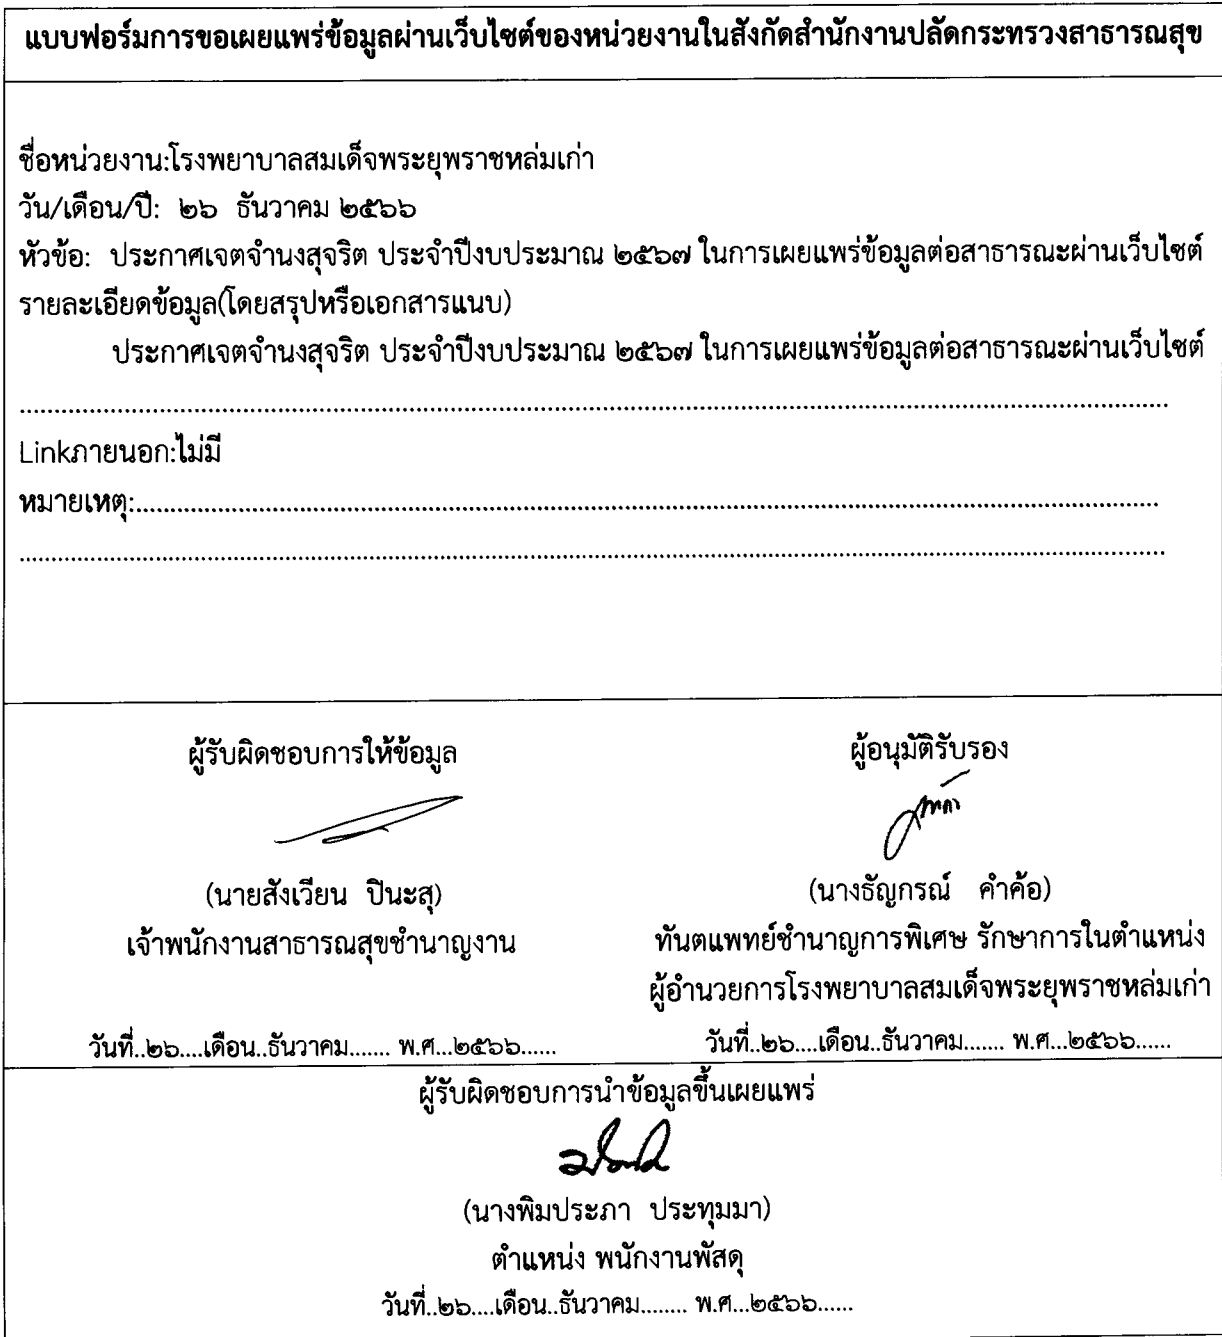 แบบฟอร์มการขอเผยแพร่ข้อมูลผ่านเว็บไซต์ของหน่วยงานในสังกัดสำนักงานปลัดกระทรวงสาธารณสุข
ชื่อหน่วยงาน:โรงพยาบาลสมเด็จพระยุพราชหล่มเก่า
วัน/เดือน/ปี: ๒๖ ธันวาคม ๒๕๖๖
หัวข้อ: ประกาศเจตจำนงสุจริต ประจำปีงบประมาณ ๒๕๖๗ ในการเผยแพร่ข้อมูลต่อสาธารณะผ่านเว็บไซต์
รายละเอียดข้อมูล(โดยสรุปหรือเอกสารแนบ)
ประกาศเจตจำนงสุจริต ประจำปีงบประมาณ ๒๕๖๗ ในการเผยแพร่ข้อมูลต่อสาธารณะผ่านเว็บไซต์
Linkภายนอก:ไม่มี
หมายเหตุ:
ผู้รับผิดชอบการให้ข้อมูล
(นายสังเวียน ปินะสุ)
เจ้าพนักงานสาธารณสุขชำนาญงาน
วันที่..๒๖....เดือน..ธันวาคม....... พ.ศ...๒๕๖๖......
ผู้อนุมัติรับรอง
(นางธัญกรณ์ คำค้อ)
ทันตแพทย์ชำนาญการพิเศษ รักษาการในตำแหน่ง
ผู้อำนวยการโรงพยาบาลสมเด็จพระยุพราชหล่มเก่า
วันที่..๒๖....เดือน..ธันวาคม....... พ.ศ...๒๕๖๖......
ผู้รับผิดชอบการนำข้อมูลขึ้นเผยแพร่
(นางพิมประภา ประทุมมา)
ตำแหน่ง พนักงานพัสดุ
วันที่..๒๖....เดือน..ธันวาคม........ พ.ศ...๒๕๖๖......